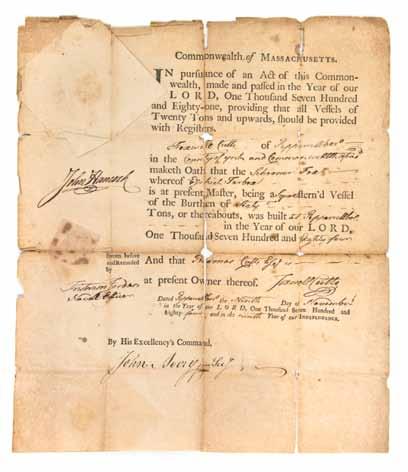 Commonwealth of MASSACHUSETTS.
IN pursuance of an Act of this Common-
wealth, made and passed in the Year of our
LORD, One Thousand Seven Hundred
and Eighty-one, providing that all Vessels of
Twenty Tons and upwards, should be provided
with Registers.
of
in the County of York and Commonwealth
maketh Oath that the Schooner
whereof
is at present Master, being a Vessel
of the Burthen of Sixty
Tons, or thereabouts, was built at
in the Year of our LORD,
One Thousand Seven Hundred and Eighty four
John Hancock
Sworn before
and Recorded
by
Naval Officer
And that Thomas Cutts Esq is
at present Owner thereof.
Dated the Ninth Day of November
in the Year of our LORD, One Thousand Seven Hundred and
Eighty four and in the ninth Year of our INDEPENDENCE.
By His Excellency's Command,
John Avery jun Secy